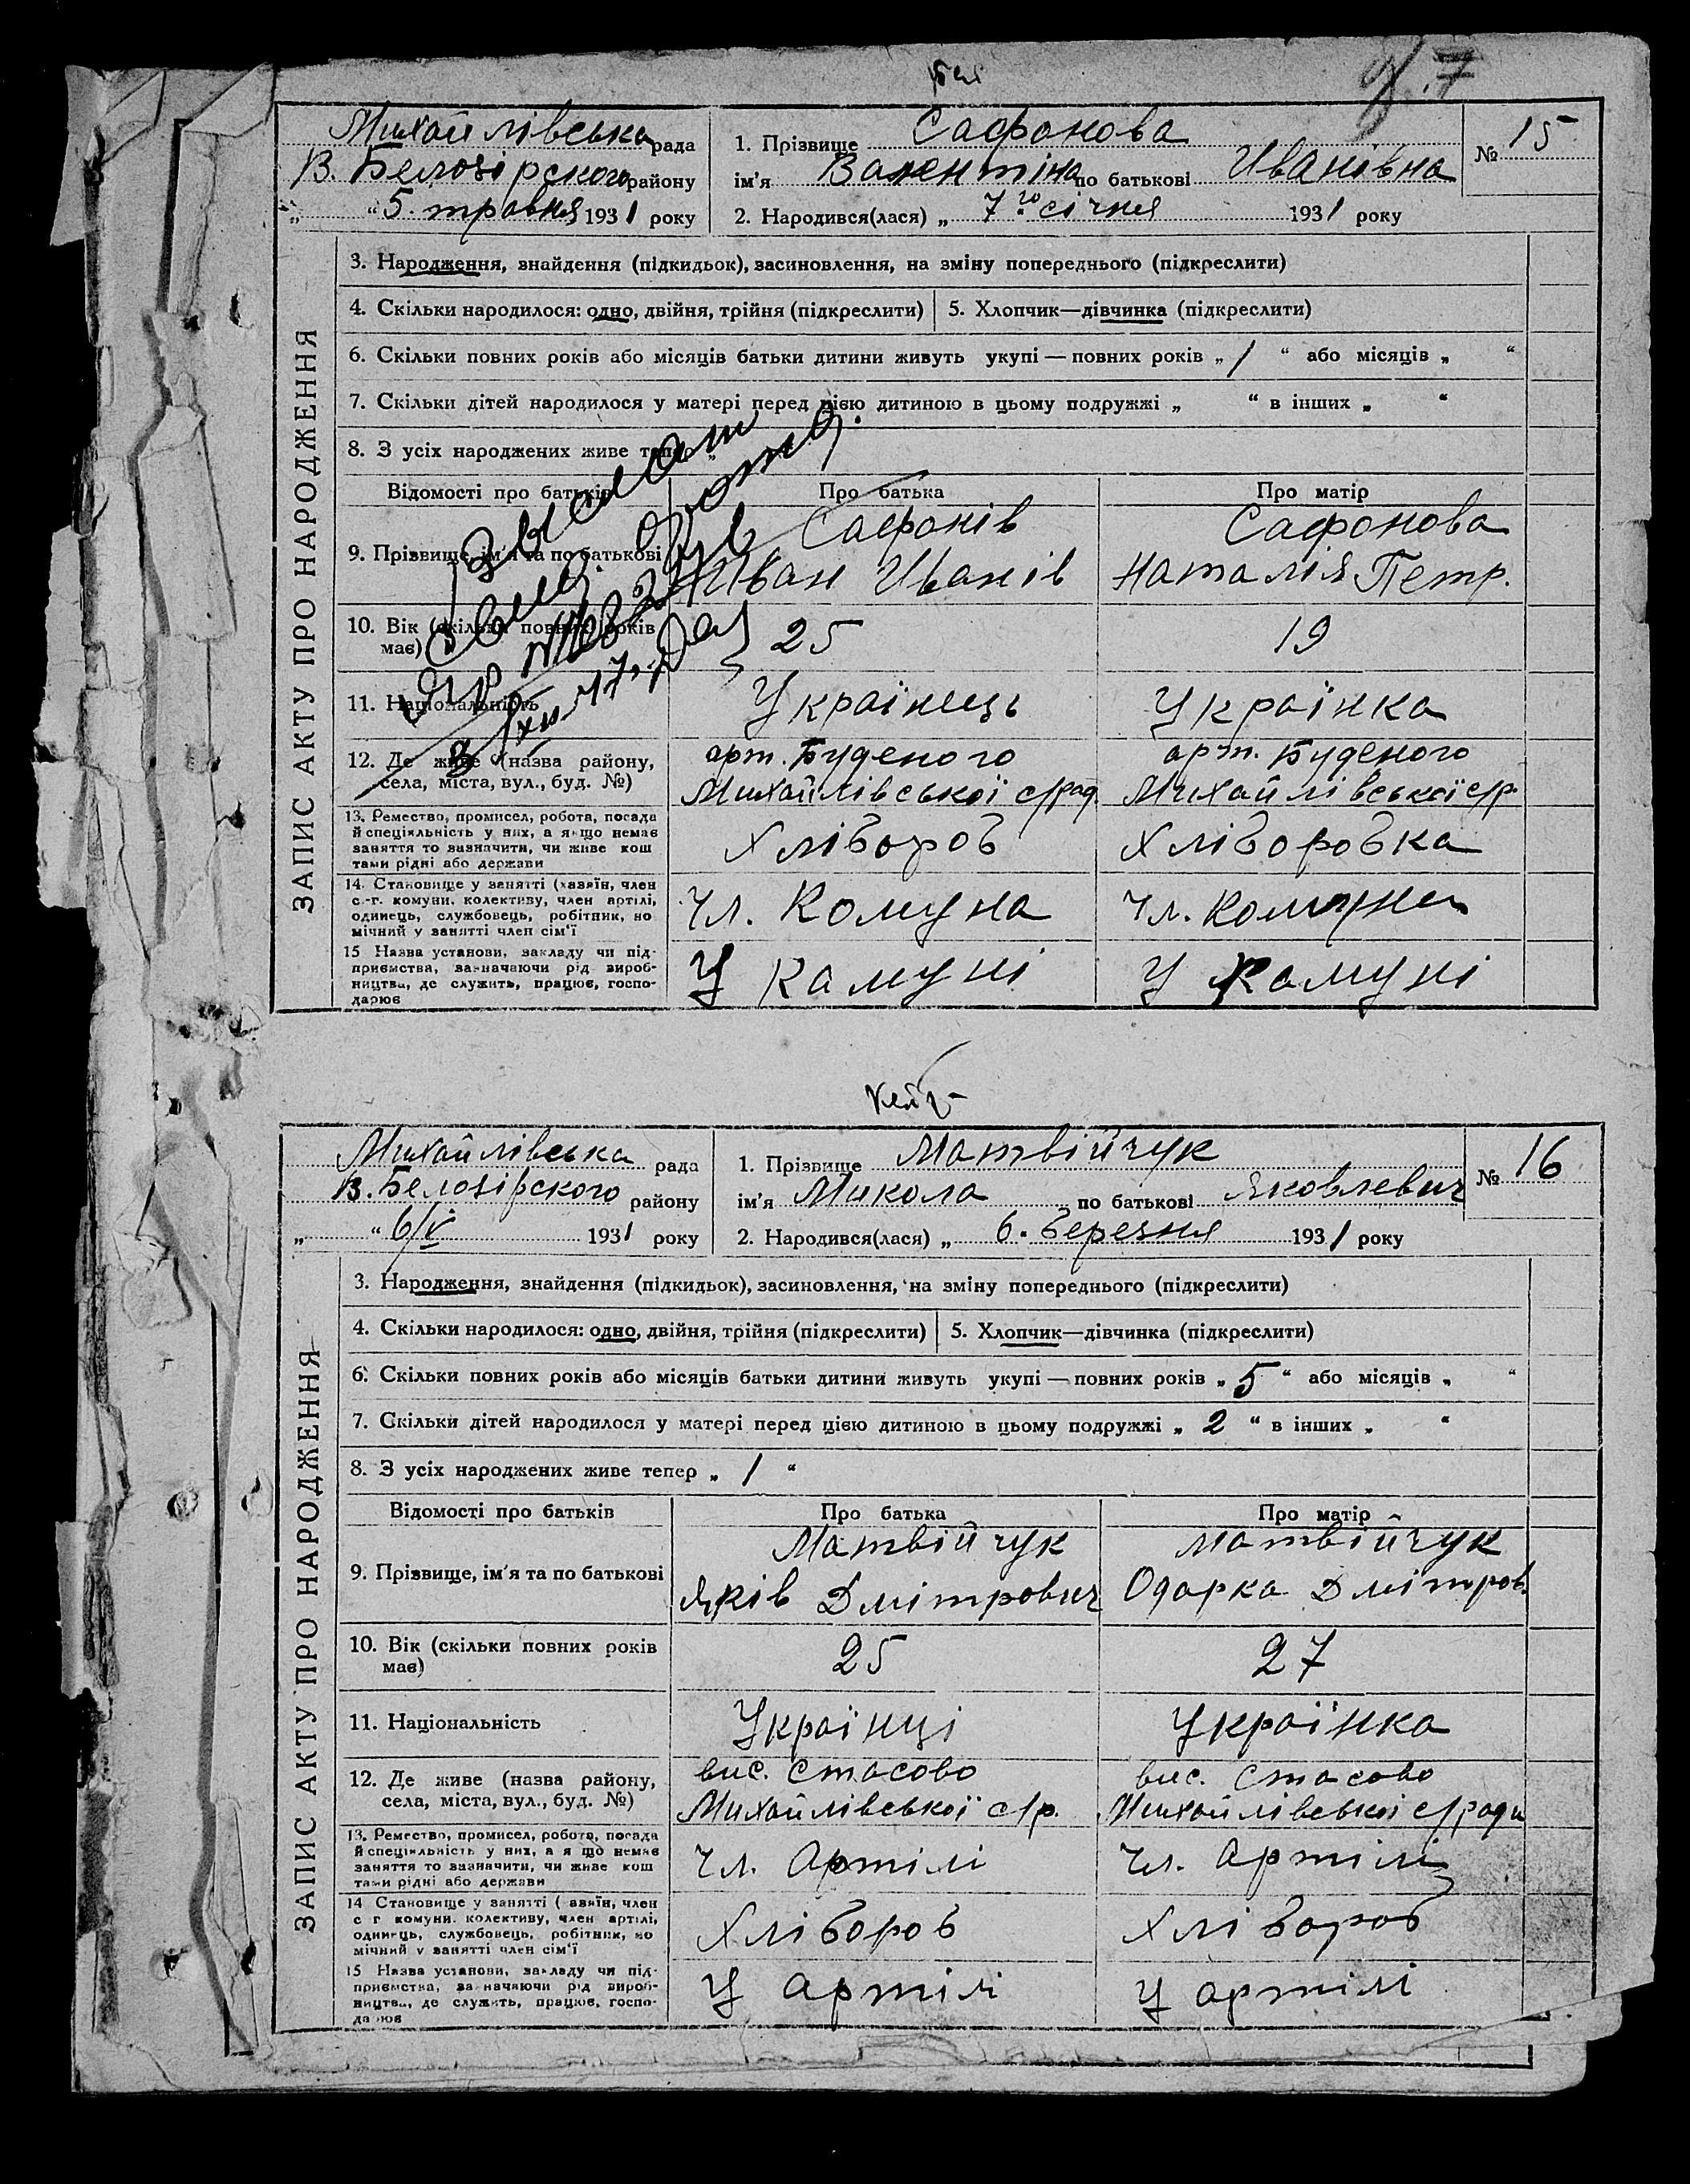 Михайлівська рада
В. Белозірского району
„ “ 5. травня 1931 року
1. Прізвище Сафонова
ім'я Валентіна по батькові Иванівна
2. Народився(лася) „ 7го січня 1931 року
№ 15
ЗАПИС АКТУ ПРО НАРОДЖЕННЯ
3. Народження, знайдення (підкидьок), засиновлення, на зміну попереднього (підкреслити)
4. Скільки народилося: одно, двійня, трійня (підкреслити)
5. Хлопчик—дівчинка (підкреслити)
6. Скільки повних років або місяців батьки дитини живуть укупі — повних років „ 1 “ або місяців „ “
7. Скільки дітей народилося у матері перед цією дитиною в цьому подружжі „ “ в інших „ “
8. З усіх народжених живе тепер „
Відомості про батьків
Про батька
Про матір
9. Прізвище, ім'я та по батькові
Сафонів
Иван Иванів
Сафонова
Наталія Петр.
10. Вік (скільки повних років має)
25
19
11. Національність
Українець
Українка
12. Де живе (назва району, села, міста, вул., буд. №)
арт. Буденого
Михайлівської с/рад.
арт. Буденого
Михайлівської с/р.
13. Ремество, промисел, робота, посада
й спеціяльність у них, а якщо немає
заняття то зазначити, чи живе кош
тами рідні або держави
Хлібороб
Хлібororобка
14. Становище у занятті (хазяїн, член
с.-г. комуни, колективу, член артілі,
одинець, службовець, робітник, по
мічний у занятті член сім'ї
Чл. Комуна
Чл. Комуна
15 Назва установи, закладу чи під-
приємства, зазначаючи рід вироб-
ництва, де служить, працює, госпо-
дарює
У Камуні
У Камуні
Михайлівська рада
В. Белозірского району
„ “ 6/V 1931 року
1. Прізвище Матвійчук
ім'я Микола по батькові Яковлевич
2. Народився(лася) „ 6. березня 1931 року
№ 16
ЗАПИС АКТУ ПРО НАРОДЖЕННЯ
3. Народження, знайдення (підкидьок), засиновлення, на зміну попереднього (підкреслити)
4. Скільки народилося: одно, двійня, трійня (підкреслити)
5. Хлопчик—дівчинка (підкреслити)
6. Скільки повних років або місяців батьки дитини живуть укупі — повних років „ 5 “ або місяців „ “
7. Скільки дітей народилося у матері перед цією дитиною в цьому подружжі „ 2 “ в інших „ “
8. З усіх народжених живе тепер „ 1 “
Відомості про батьків
Про батька
Про матір
9. Прізвище, ім'я та по батькові
Матвійчук
Яків Дмітрович
Матвійчук
Одарка Дмітров.
10. Вік (скільки повних років має)
25
27
11. Національність
Українці
Українка
12. Де живе (назва району, села, міста, вул., буд. №)
вис. Стасово
Михайлівської с/р.
вис. Стасово
Михайлівської с/ради
13. Ремество, промисел, робота, посада
й спеціяльність у них, а якщо немає
заняття то зазначити, чи живе кош
тами рідні або держави
Чл. Артілі
Чл. Артілі
14 Становище у занятті (хазяїн, член
с г комуни. колективу, член артілі,
одинець, службовець, робітник, по
мічний у занятті член сім'ї
Хлібороб
Хлібороб
15 Назва установи, закладу чи під-
приємства, зазначаючи рід вироб-
ництва, де служить, працює, госпо-
дарює
У Артілі
У артілі